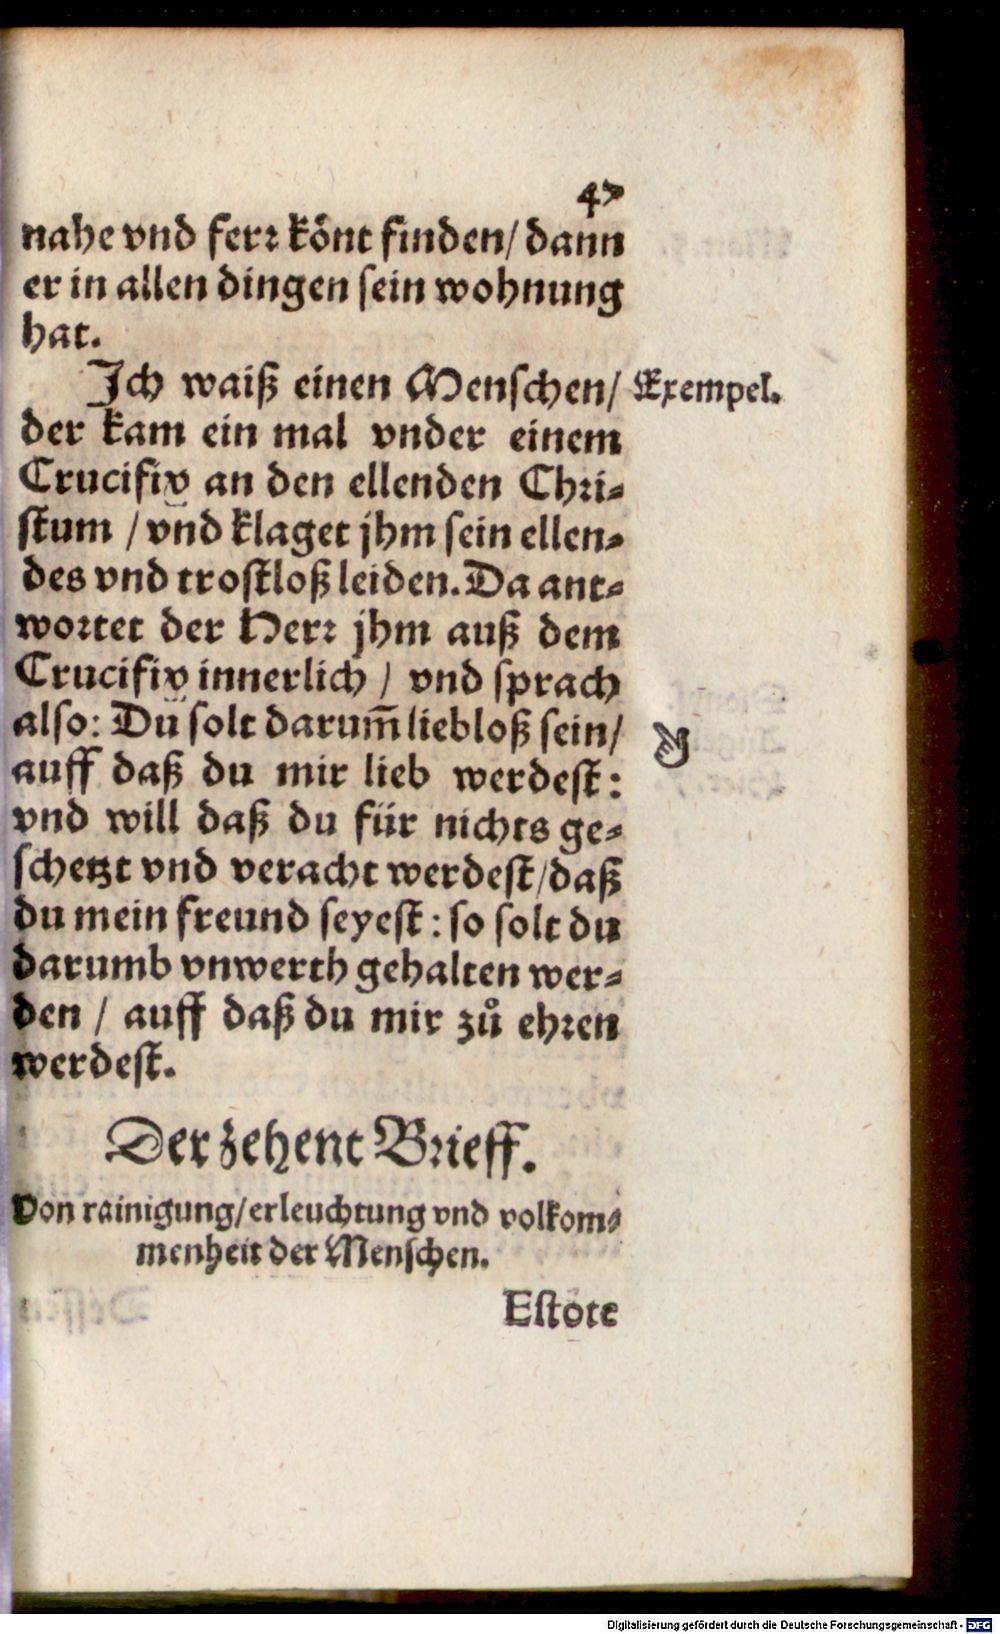 47
nahe vnd ferr könt finden/ dann
er in allen dingen sein wohnung
hat.
Ich waiß einen Menschen/ Exempel.
der kam ein mal vnder einem
Crucifix an den ellenden Chri-
stum / vnd klaget jhm sein ellen-
des vnd trostloß leiden. Da ant-
wortet der Herr jhm auß dem
Crucifix innerlich / vnd sprach
also: Du solt darum̃ liebloß sein/
auff daß du mir lieb werdest:
vnd will daß du für nichts ge-
schetzt vnd veracht werdest/ daß
du mein freund seyest: so solt du
darumb vnwerth gehalten wer-
den / auff daß du mir zů ehren
werdest.
Der zehent Brieff.
Von rainigung/ erleuchtung vnd volkom-
menheit der Menschen.
Estote
Digitalisierung gefördert durch die Deutsche Forschungsgemeinschaft - DFG